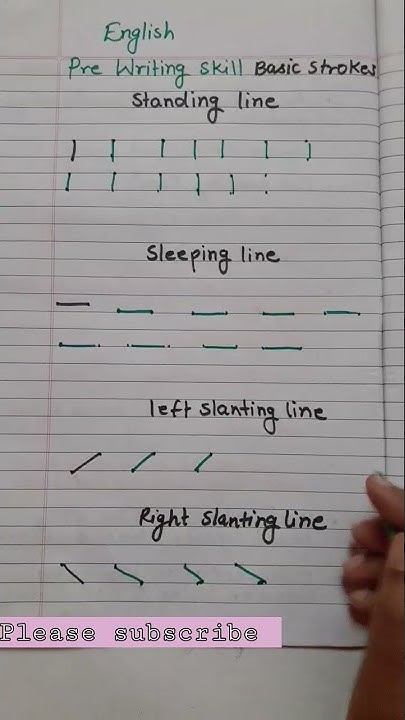 English
Pre Writing Skill Basic Strokes
Standing line
Sleeping line
left Slanting line
Right Slanting line
Please subscribe